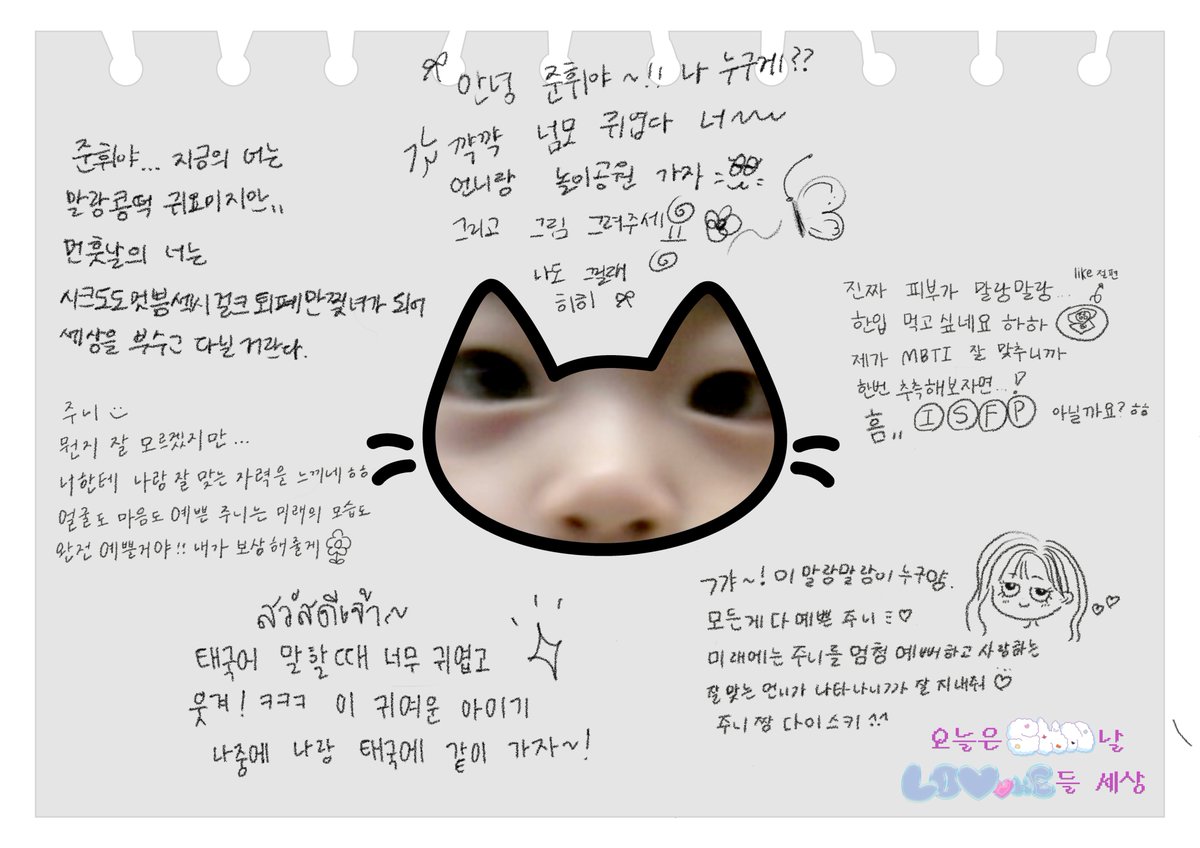 안녕 준휘야~!! 나 누구게??
꺅꺅 넘모 귀엽다 너~~~
언니랑 놀이공원 가자
그리고 그림 그려주세요
나도 낄래
히히
준휘야... 지금의 너는
말랑콩떡 귀요미지만,,
먼훗날의 너는
시크도도멋쁨섹시걸크퇴폐만찢녀가 되어
세상을 부수고 다닐 거란다.
like 젤펜
진짜 피부가 말랑말랑...
한입 먹고 싶네요 하하
제가 MBTI 잘 맞추니까
한번 추측해보자면...!
흠,, ISFP 아닐까요? ㅎㅎ
주니
뭔지 잘 모르겠지만...
너한테 나랑 잘 맞는 자력을 느끼네 ㅎㅎ
얼굴도 마음도 예쁜 주니는 미래의 모습도
완전 예쁠거야!! 내가 보상해줄게
สวัสดีเจ้า~
태국어 말할때 너무 귀엽고
웃겨! ㅋㅋㅋ 이 귀여운 아이기
나중에 나랑 태국에 같이 가자~!
ㄱ갸~! 이 말랑말랑이 누구양.
모든게 다 예쁜 주니 ♡
미래에는 주니를 엄청 예뻐하고 사랑하는
잘맞는 언니가 나타나니까 잘 지내줘 ♡
주니짱 다이스키 ^^
오늘은 날
들 세상